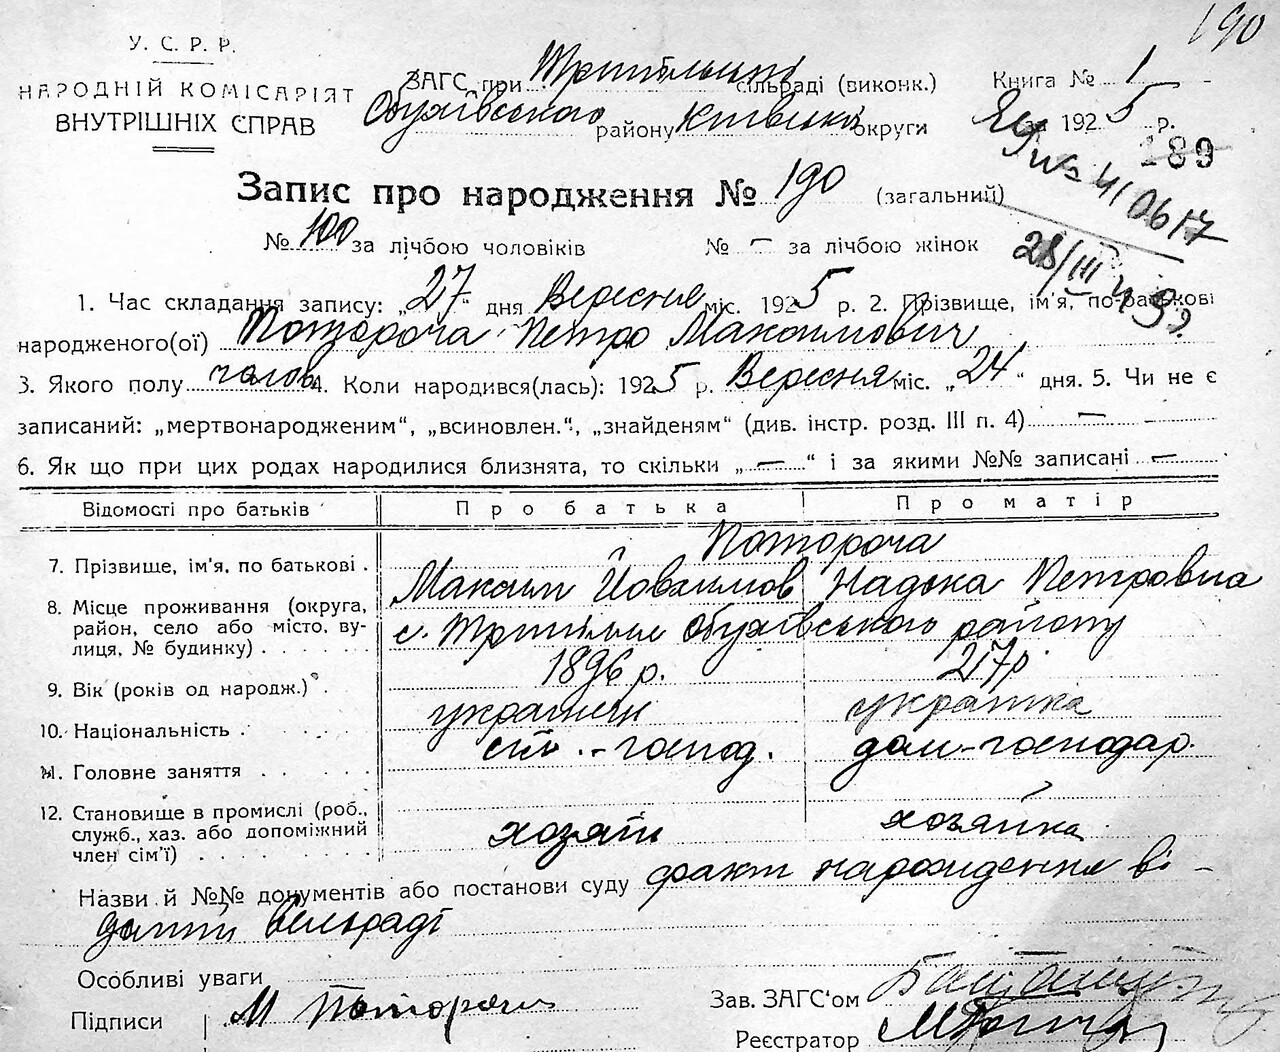 190
У. С. Р. Р.
НАРОДНІЙ КОМІСАРІЯТ
ВНУТРІШНІХ СПРАВ
ЗАГС при Трипільській сільраді (виконк.)
Обухівського району Київської округи
Книга № 1
за 1925 р.
189
Запис про народження № 190 (загальний)
№ 100 за лічбою чоловіків № — за лічбою жінок
№ 410617
28/III 49 р.
1. Час складання запису: „27“ дня Вересня міс. 1925 р. 2. Прізвище, ім'я, по-батькові
народженого(ої) Потороча Петро Максимович
3. Якого полу чолов. 4. Коли народився(лась): 1925 р. Вересня міс. „24“ дня. 5. Чи не є
записаний: „мертвонародженим“, „всиновлен.“, „знайденям“ (див. інстр. розд. III п. 4) —
6. Як що при цих родах народилися близнята, то скільки „—“ і за якими №№ записані —
Відомості про батьків Про батька Про матір
Потороча
7. Прізвище, ім'я, по батькові . Максим Йовхимов Надька Петровна
8. Місце проживання (округа, район, село або місто, вулиця, № будинку) с. Трипілля Обухівського району
9. Вік (років од народж.) . 1896 р. 27 р.
10. Національність . українець українка
11. Головне заняття . . . . . сіль.-господ. дом-господар.
12. Становище в промислі (роб., служб., хаз. або допоміжний член сім'ї) . . . . . хозяїн хозяйка
Назви й №№ документів або постанови суду факт народження ві-
домий сільраді
Особливі уваги
Підписи М Потороча
Зав. ЗАГС'ом
Реєстратор